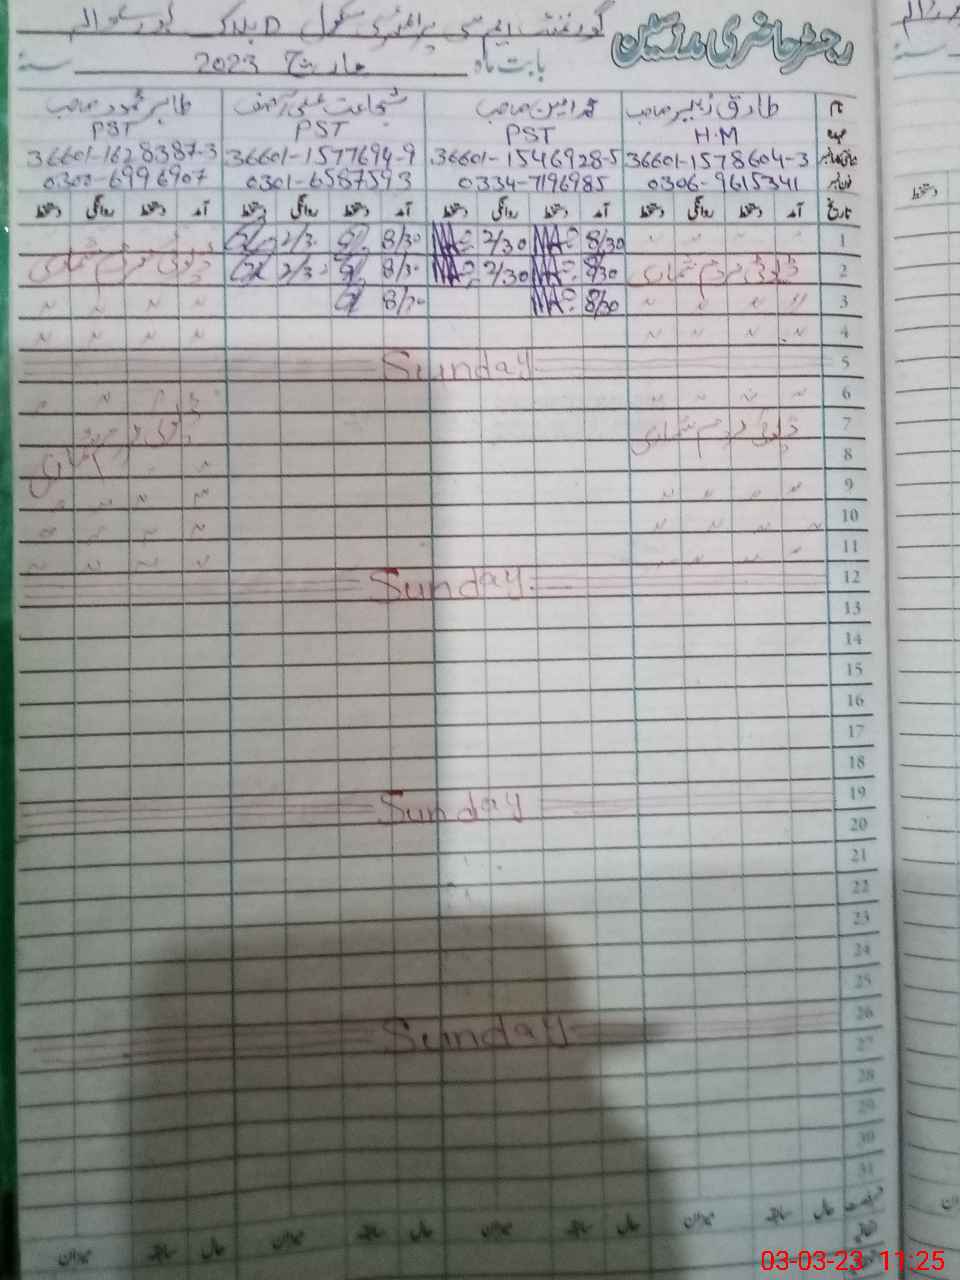 رجسٹر حاضری مدرسین
گورنمنٹ ایم سی پرائمری سکول D بلاک بورے والہ
بابت ماہ مارچ 2023 سنہ
نام طارق زبیر صاحب محمد امین صاحب شجاعت علی آصف طاہر محمود صاحب
عہدہ H.M PST PST PST
36601-1578604-3 36601-1546928-5 36601-1577694-9 36601-1628387-3
0306-9615341 0334-7196985 0301-6587593 0300-6996907
تاریخ آمد دستخط روانگی دستخط آمد دستخط روانگی دستخط آمد دستخط روانگی دستخط آمد دستخط روانگی دستخط
1 8/30 2/30 8/30 2/30
2 ڈیوٹی مردم شماری 8/30 2/30 8/30 2/30 ڈیوٹی مردم شماری
3 8/30 8/30
4
5 Sunday
6
7 ڈیوٹی مردم شماری ڈیوٹی مردم شماری
8
9
10
11
12 Sunday
13
14
15
16
17
18
19 Sunday
20
21
22
23
24
25
26 Sunday
27
28
29
30
31
حال سابقہ میزان حال سابقہ میزان حال سابقہ میزان حال سابقہ میزان
03-03-23 11:25